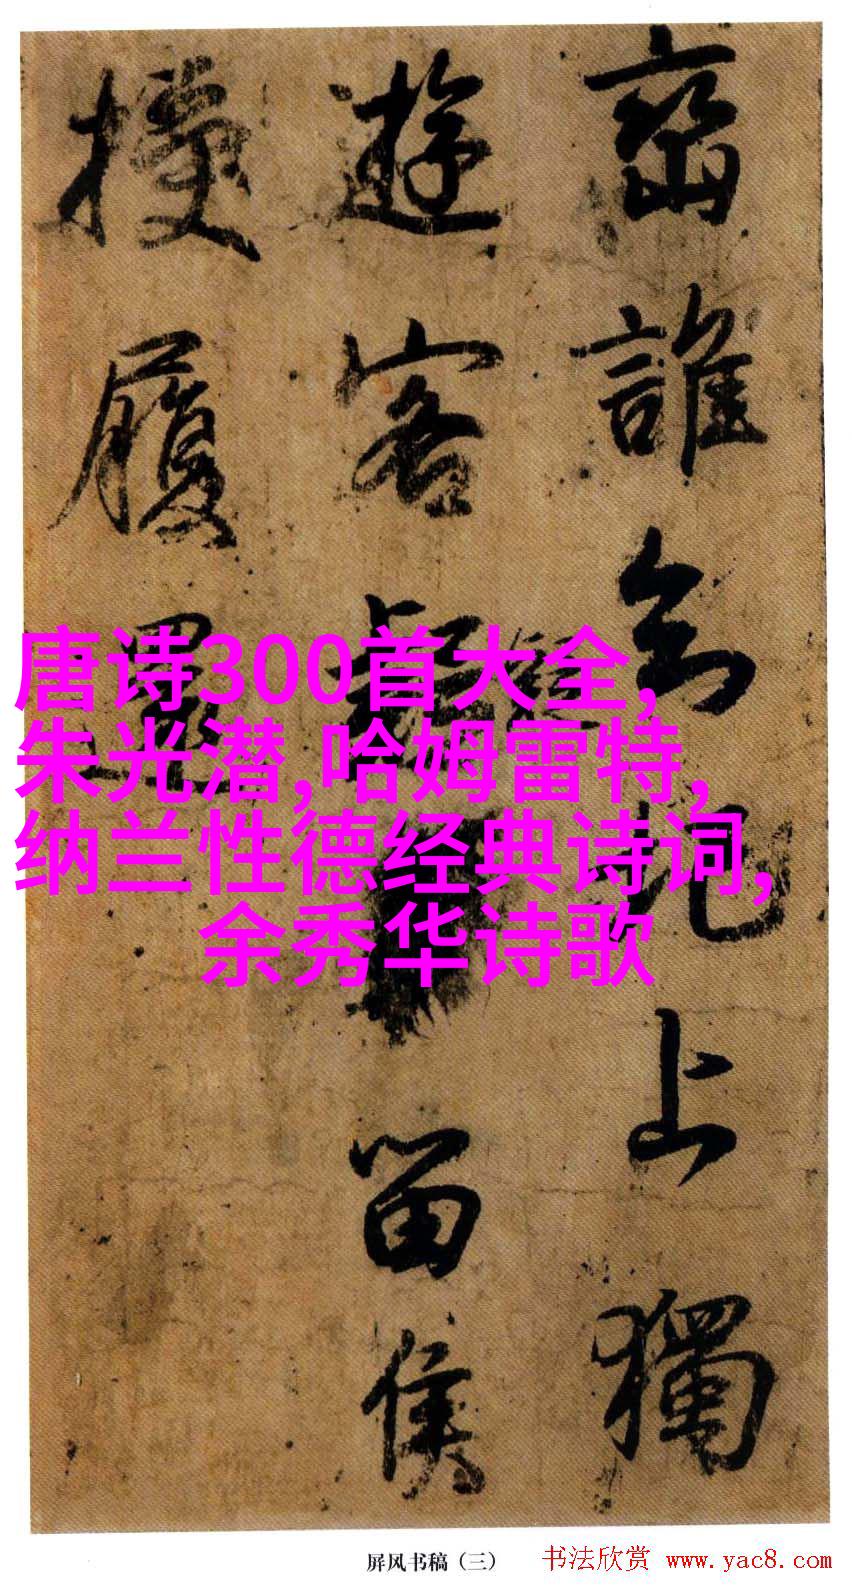 誰上獨
遊客留侯
履
唐诗300首大全,
朱光潜,哈姆雷特,
纳兰性德经典诗词,
余秀华诗歌
屏风书稿（三）
书法欣赏 www.yac8.com